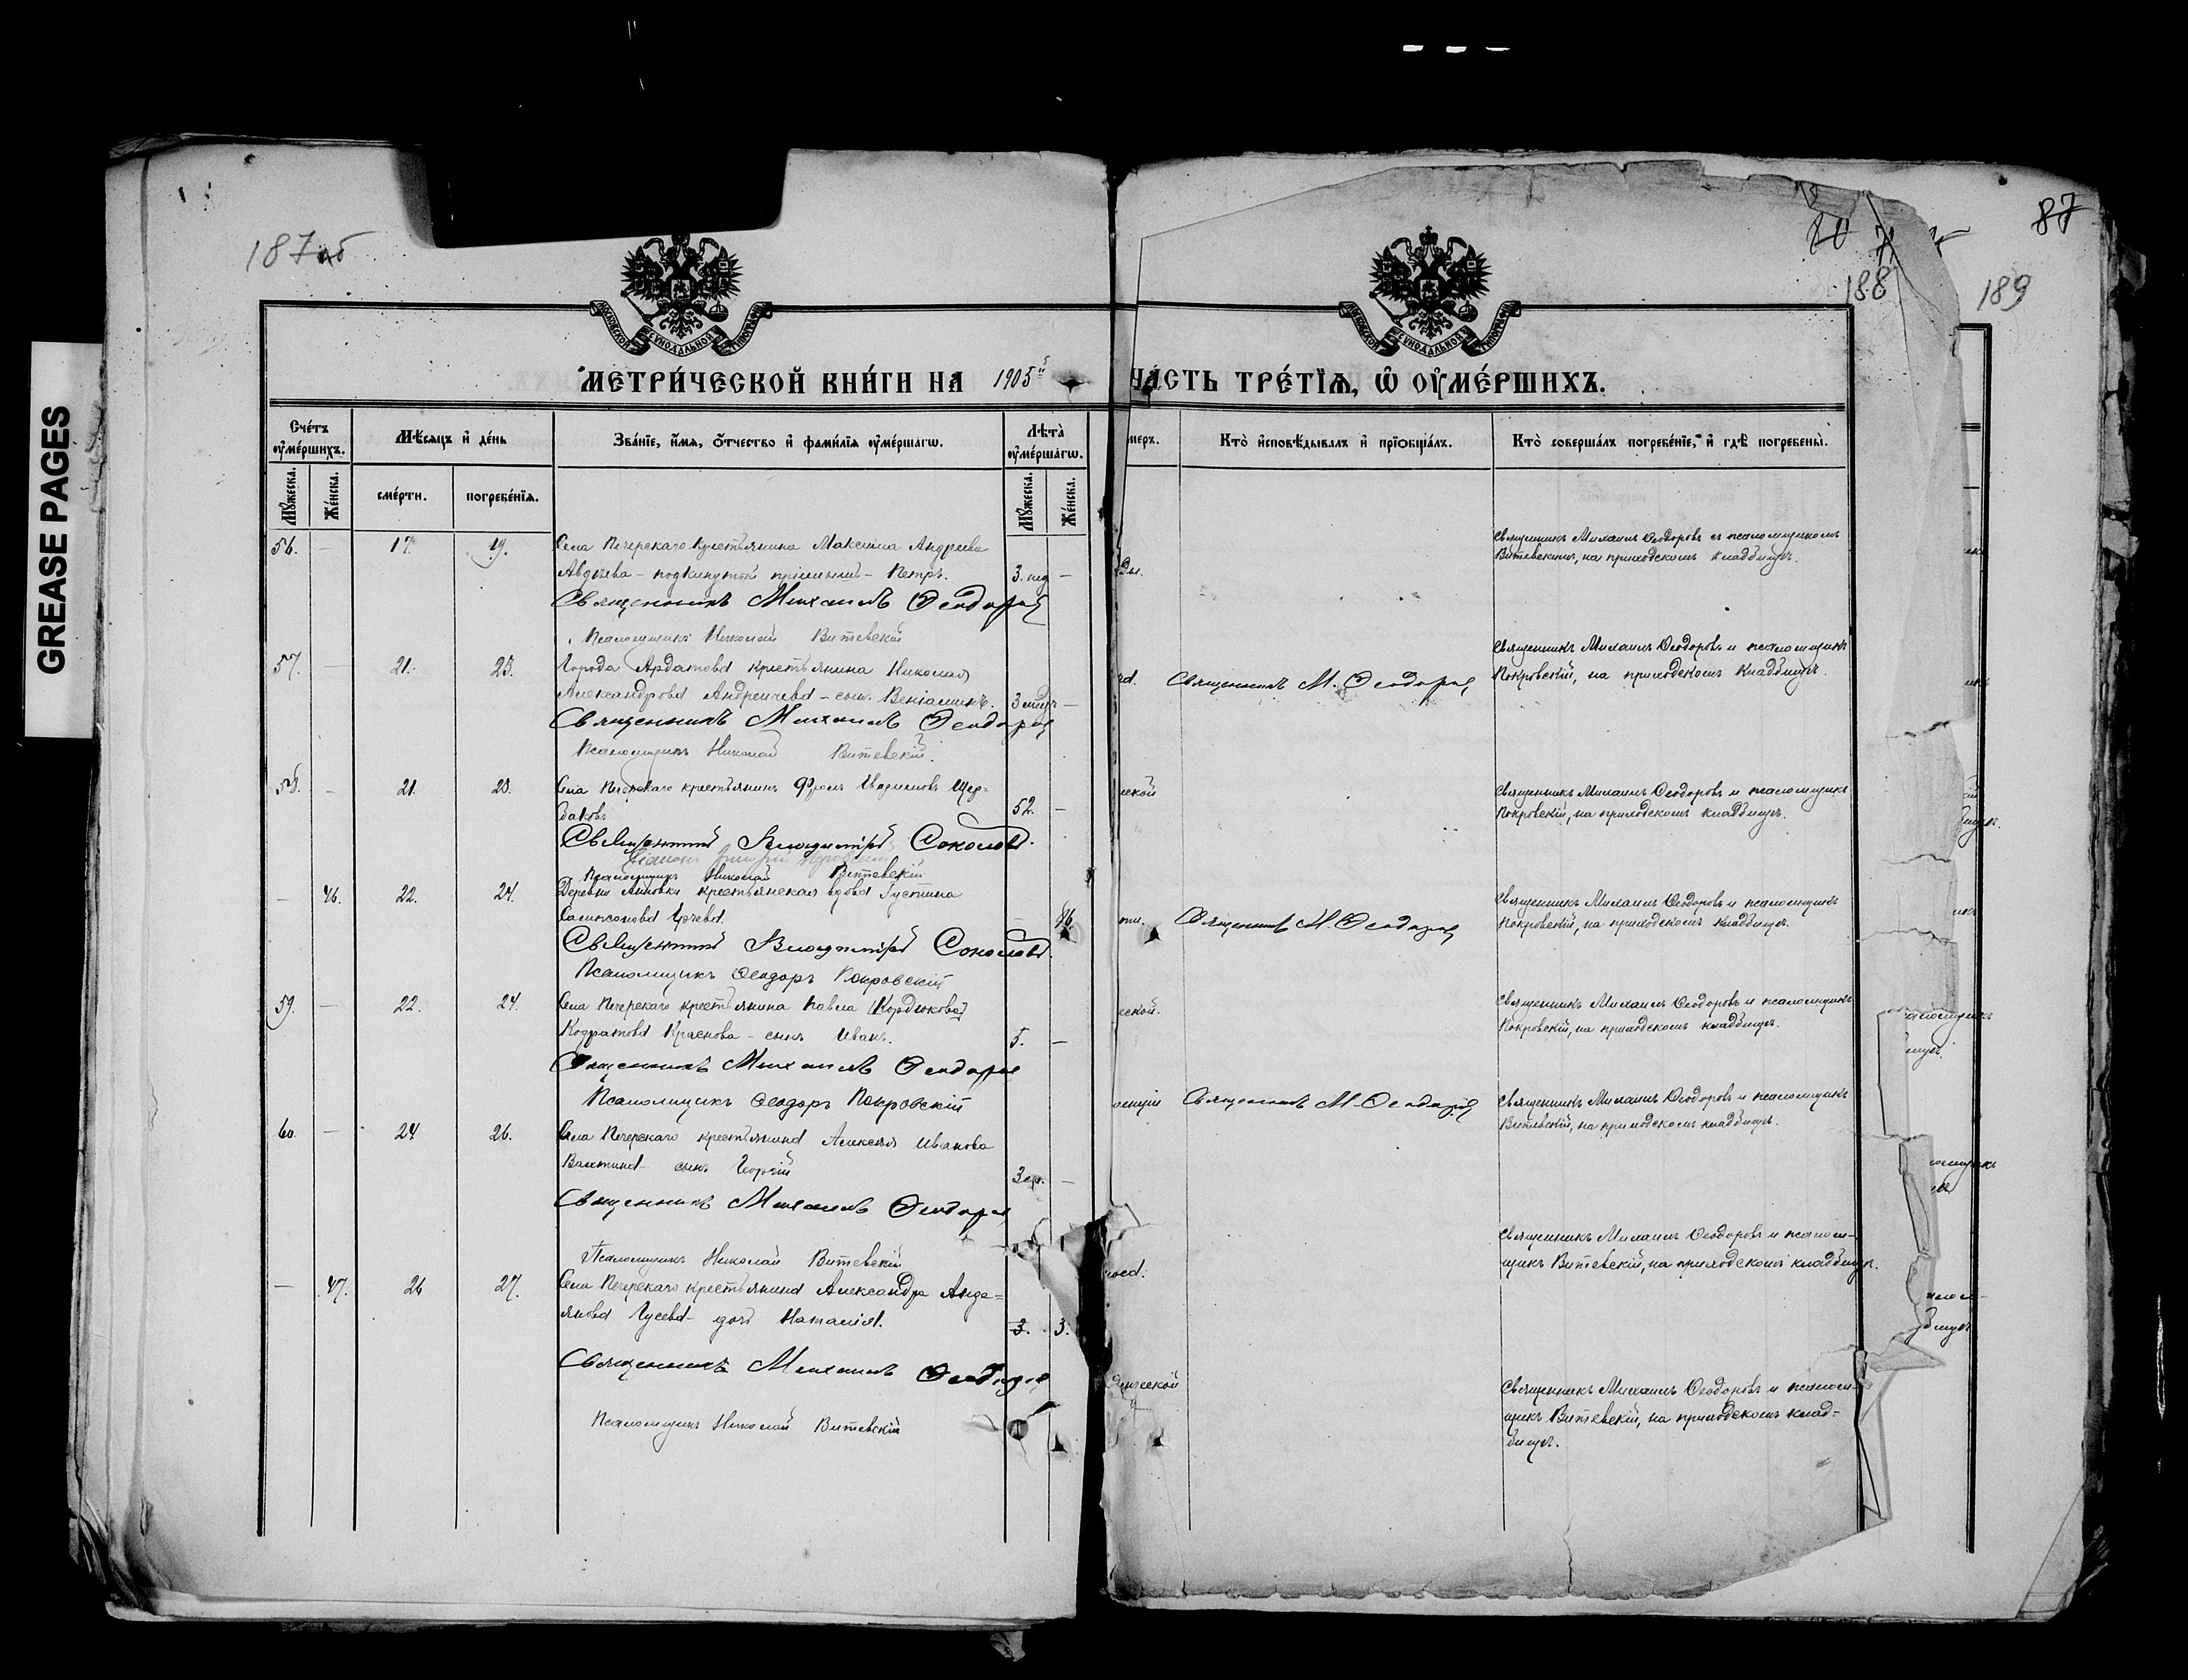 GREASE PAGES
187 об
87
188
189
МЕТРИ́ЧЕСКОЙ КНИ́ГИ НА 1905й
ЧАСТЬ ТРЕ́ТЇЯ, Ѡ ОУ҆МЕ́РШИХЪ.
МОСКОВСКОЙ СѴНОДАЛЬНОЙ ТИПОГРАФІИ
МОСКОВСКОЙ СѴНОДАЛЬНОЙ ТИПОГРАФІИ
Сче́тъ оу҆ме́ршихъ.
Мѣ́сяцъ и҆ де́нь
Зва́нїе, и҆́мя, ѻ҆́тчество и҆ фами́лїя оу҆ме́ршагѡ.
Лѣ́та оу҆ме́ршагѡ.
Кто̀ и҆сповѣ́дывалъ и҆ прїѡбща́лъ.
Кто̀ соверша́лъ погребе́нїе, и҆ гдѣ̀ погребены̀.
Мꙋ́жеска.
Же́нска.
сме́рти.
погребе́нїя.
Мꙋ́жеска.
Же́нска.
56. — 17. 19. Села Печерскаго крестьянина Максима Андреева
Авдѣева - подкинутый пріемышъ - Петръ. 3. нед —
Священникъ Михаилъ Ѳеодоровъ
Псаломщикъ Николай Витевскій
Священникъ Михаилъ Ѳеодоровъ съ псаломщикомъ
Витевскимъ, на приходскомъ кладбищѣ.
57. — 21. 23. Города Ардатова крестьянина Николая
Александрова Андреичева - сынъ Веніаминъ.
Священникъ Михаилъ Ѳеодоровъ
Псаломщикъ Николай Витевскій.
Священникъ М. Ѳеодоровъ
Священникъ Михаилъ Ѳеодоровъ и псаломщикъ
Покровскій, на приходскомъ кладбищѣ.
58. — 21. 23. Села Печерскаго крестьянинъ Фролъ Щер-
баковъ 52. —
Священникъ Соколовъ.
Псаломщикъ Николай Витевскій
Священникъ Михаилъ Ѳеодоровъ и псаломщикъ
Покровскій, на приходскомъ кладбищѣ.
— 46. 22. 24. Деревни крестьянская вдова Густина
Самсонова
Священникъ Соколовъ.
Псаломщикъ Ѳеодоръ Покровскій
Священникъ М. Ѳеодоровъ
Священникъ Михаилъ Ѳеодоровъ и псаломщикъ
Покровскій, на приходскомъ кладбищѣ.
59. — 22. 24. Села Печерскаго крестьянина Павла [Кордюкова]
Кодратова Краснова - сынъ Иванъ. 5. —
Священникъ Михаилъ Ѳеодоровъ
Псаломщикъ Ѳеодоръ Покровскій
Священникъ Михаилъ Ѳеодоровъ и псаломщикъ
Покровскій, на приходскомъ кладбищѣ.
60. — 24 26. Села Печерскаго крестьянина Алексѣя Иванова
сынъ Георгій —
Священникъ Михаилъ Ѳеодоровъ
Псаломщикъ Николай Витевскій
Священникъ М. Ѳеодоровъ
Священникъ Михаилъ Ѳеодоровъ и псаломщикъ
Витевскій, на приходскомъ кладбищѣ.
— 47. 26 27. Села Печерскаго крестьянина Александра
Гусева - дочь Наталія. 3. 3.
Священникъ Михаилъ Ѳеодоровъ
Псаломщикъ Николай Витевскій
Священникъ Михаилъ Ѳеодоровъ и псалом-
щикъ Витевскій, на приходскомъ кладбищѣ.
Священникъ Михаилъ Ѳеодоровъ и псалом-
щикъ Витевскій, на приходскомъ клад-
бищѣ.